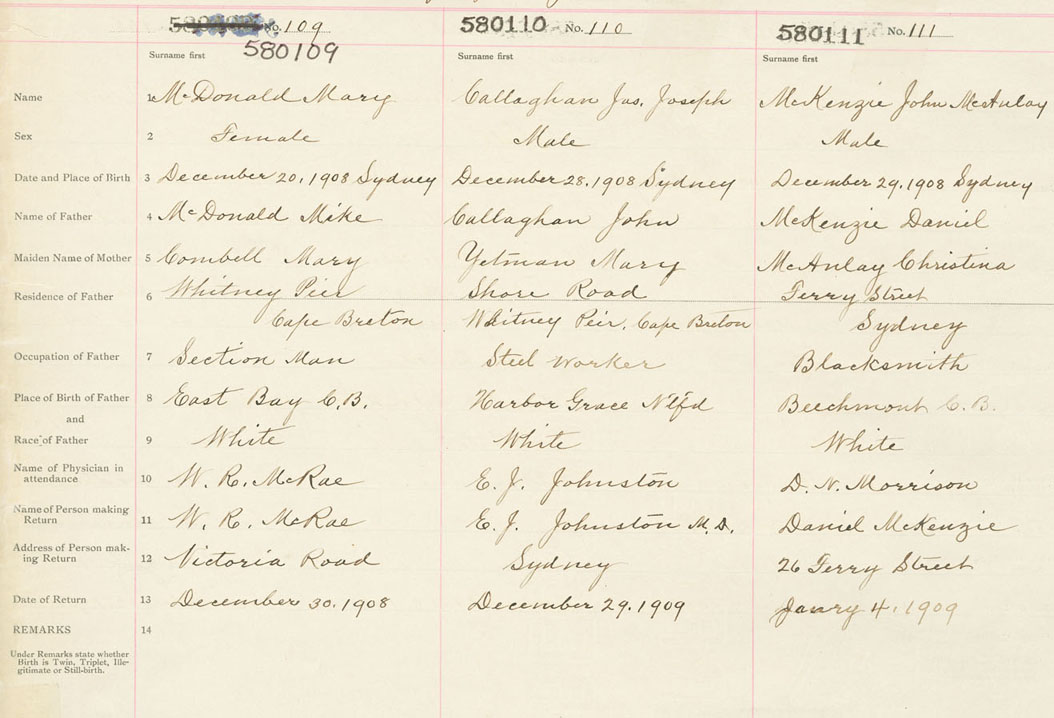 No. 109 580110 No. 110 580111 No. 111
580109
Surname first Surname first Surname first
Name 1 McDonald Mary Callaghan Jas. Joseph McKenzie John McAulay
Sex 2 Female Male Male
Date and Place of Birth 3 December 20, 1908 Sydney December 28, 1908 Sydney December 29, 1908 Sydney
Name of Father 4 McDonald Mike Callaghan John McKenzie Daniel
Maiden Name of Mother 5 Combell Mary Yetman Mary McAulay Christina
Residence of Father 6 Whitney Pier Shore Road Ferry Street
Cape Breton Whitney Peir, Cape Breton Sydney
Occupation of Father 7 Section Man Steel Worker Blacksmith
Place of Birth of Father 8 East Bay C.B. Harbor Grace Nfld Beechmont C.B.
and
Race of Father 9 White White White
Name of Physician in
attendance 10 W. R. McRae E. J. Johnston D. N. Morrison
Name of Person making
Return 11 W. R. McRae E. J. Johnston M.D. Daniel McKenzie
Address of Person mak-
ing Return 12 Victoria Road Sydney 26 Ferry Street
Date of Return 13 December 30, 1908 December 29, 1909 Janry 4, 1909
REMARKS 14
Under Remarks state whether
Birth is Twin, Triplet, Ille-
gitimate or Still-birth.